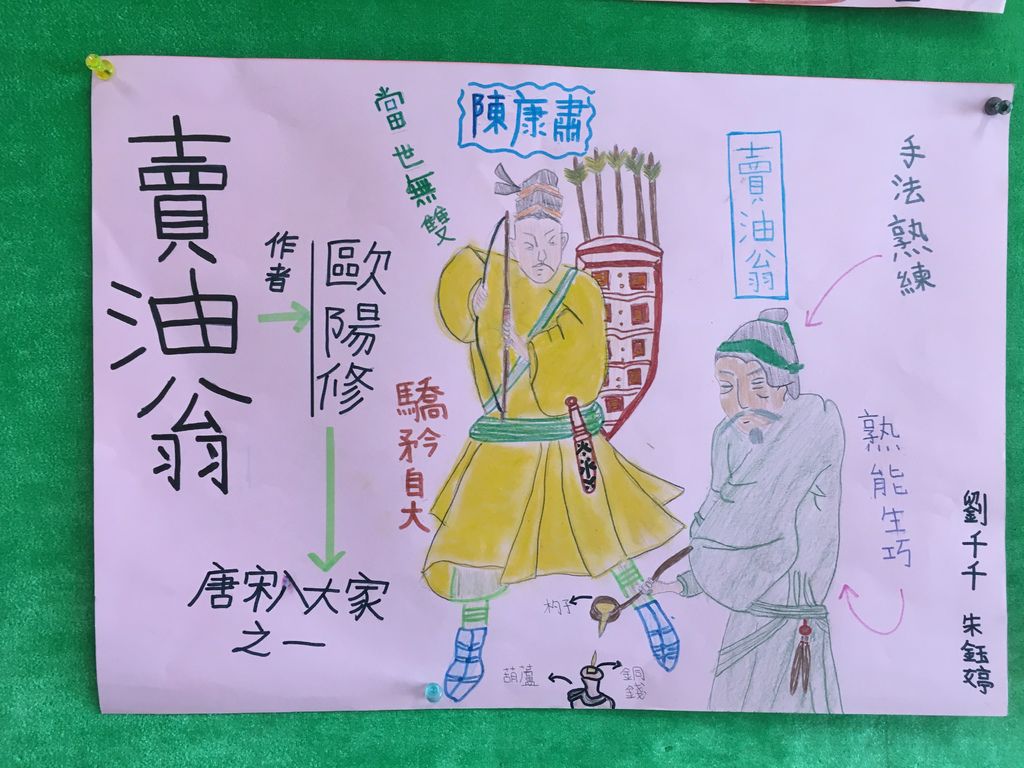 賣油翁
作者
歐陽修
唐宋八大家
之一
當世無雙
陳康肅
驕矜自大
賣油翁
手法熟練
熟能生巧
杓子
葫蘆
銅錢
劉千千 朱鈺婷